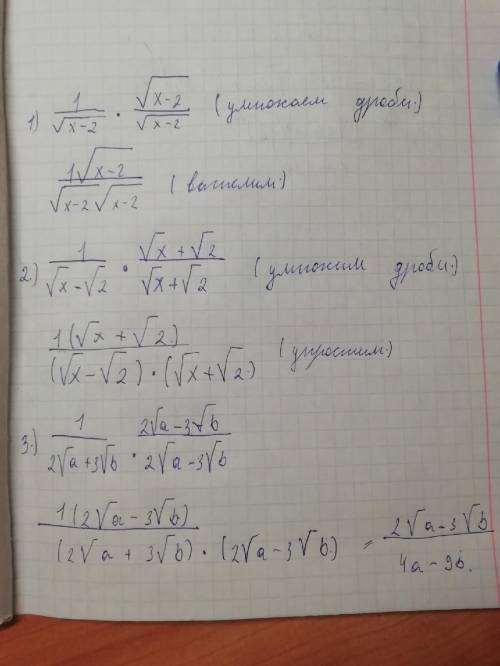 1) 1/√(x-2) · √(x-2)/√(x-2) (умножаем дроби.)
1√(x-2) / √(x-2)√(x-2)
2) 1/(√x-√2) · (√x+√2)/(√x+√2) (умножим дроби.)
1(√x+√2) / (√x-√2)·(√x+√2) (упростим.)
3.) 1/(2√a+3√b) · (2√a-3√b)/(2√a-3√b)
1(2√a-3√b) / (2√a+3√b)·(2√a-3√b) = (2√a-3√b)/(4a-9b.)